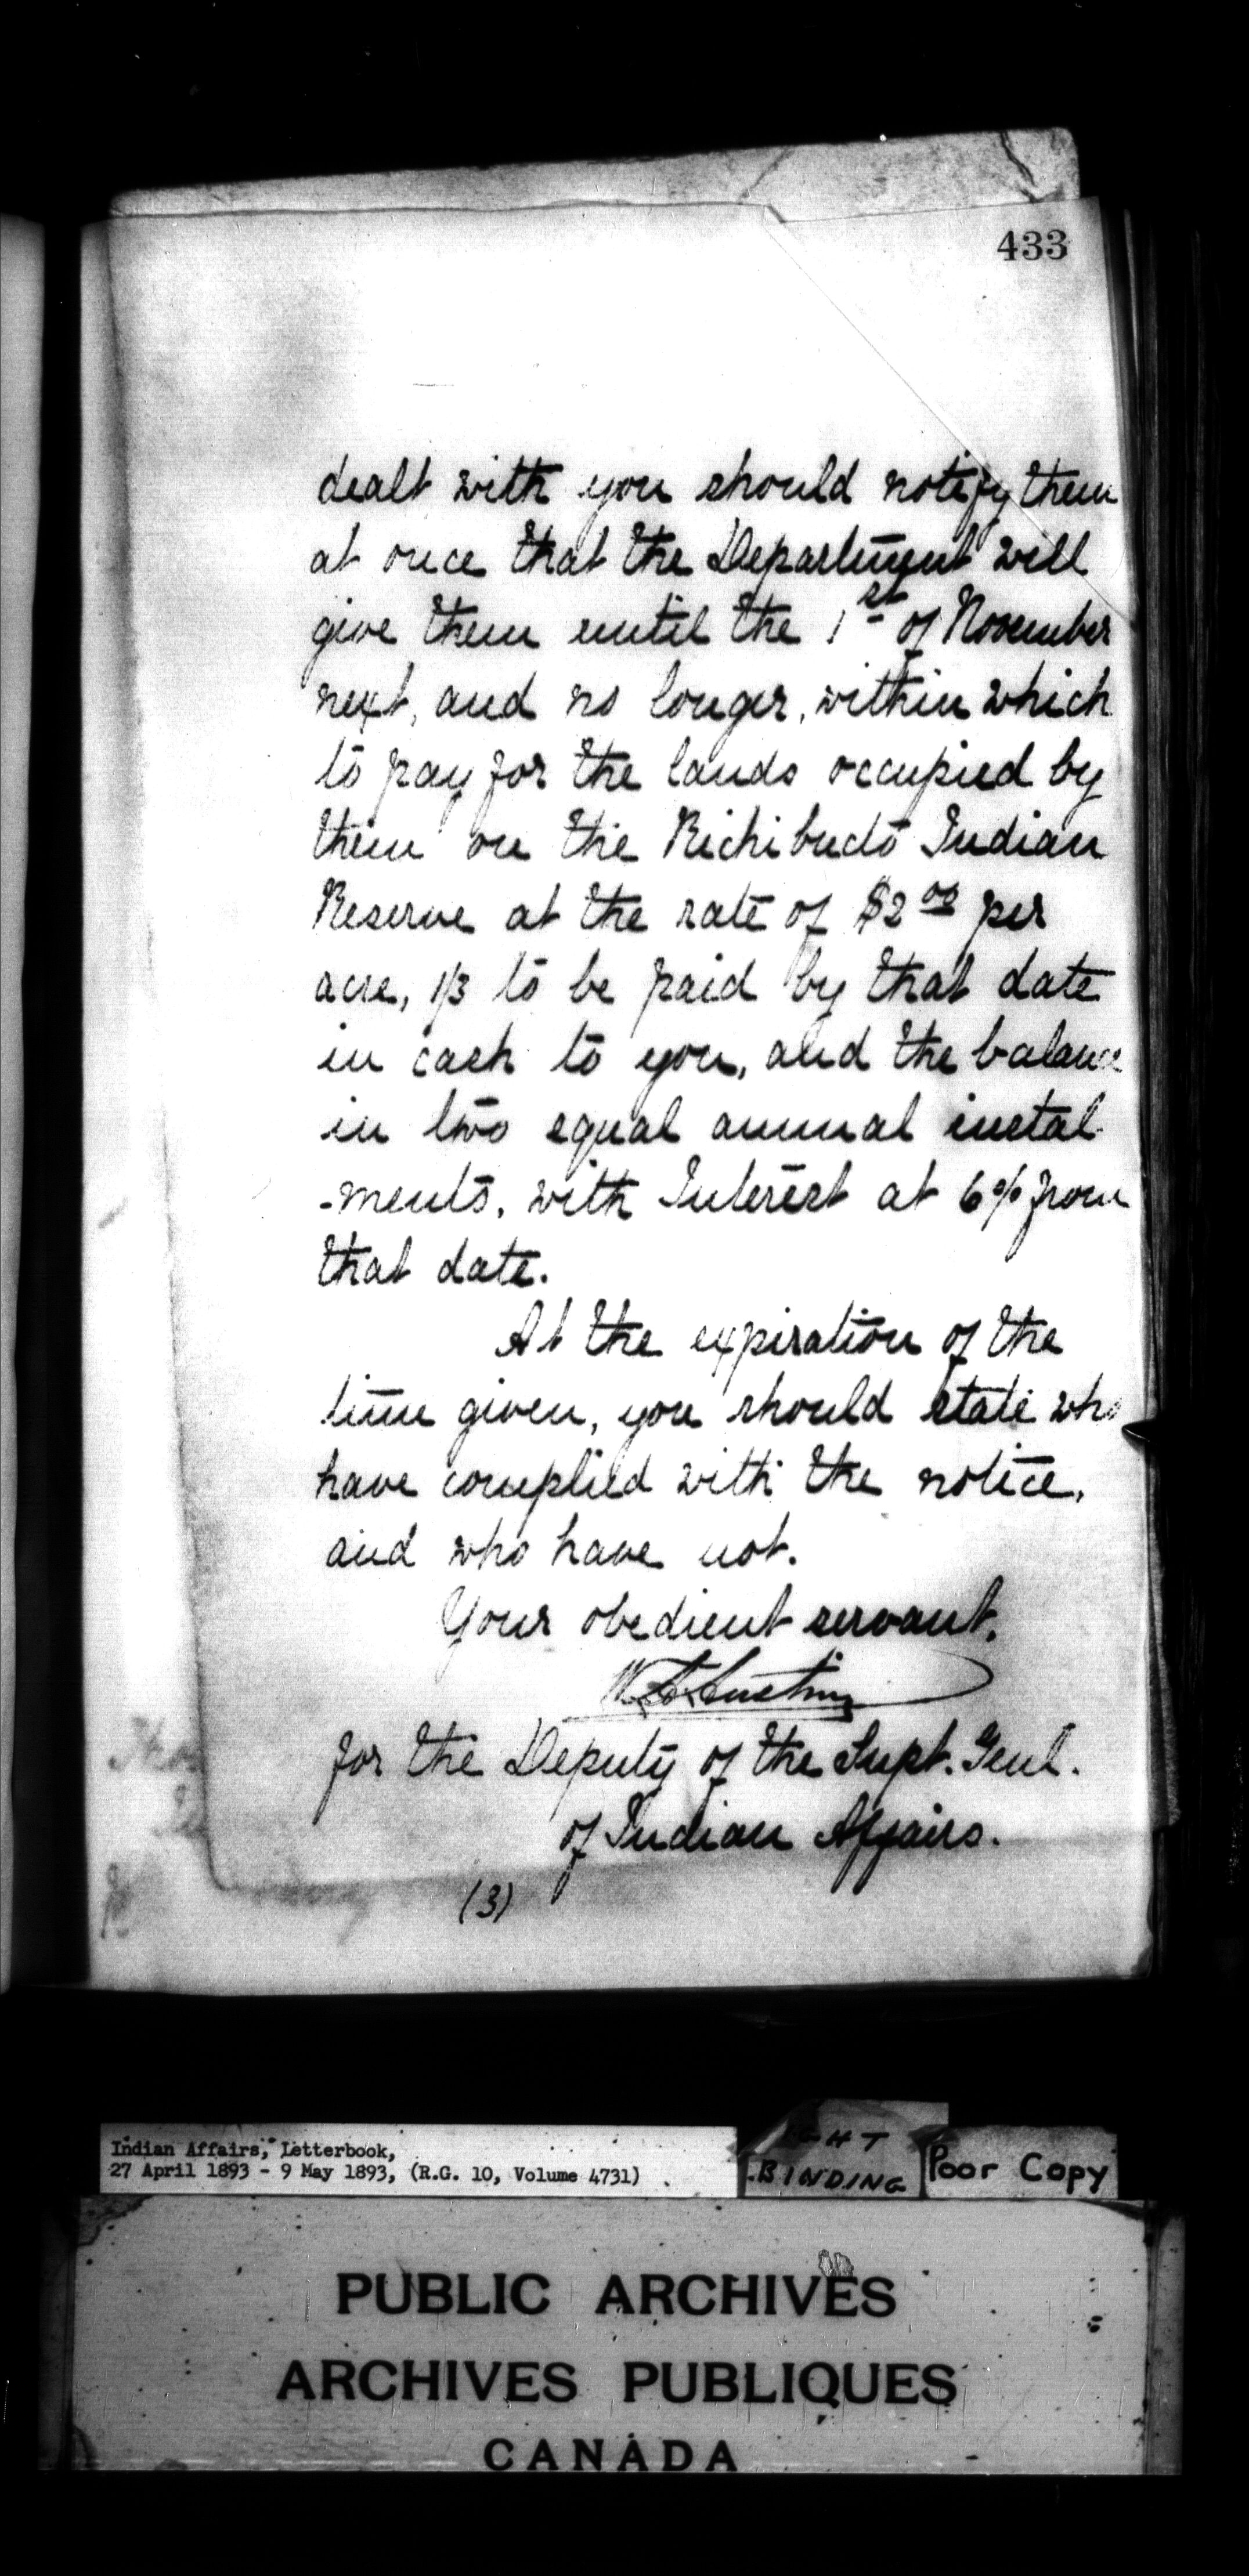 433
dealt with you should notify them
at once that the Department will
give them until the 1st of November
next, and no longer, within which
to pay for the lands occupied by
them on the Richibucto Indian
Reserve at the rate of $2 00 per
acre, 1/3 to be paid by that date
in cash to you, and the balance
in two equal annual instal-
-ments, with Interest at 6% from
that date.
At the expiration of the
time given, you should state who
have complied with the notice,
and who have not.
Your obedient servant,
for the Deputy of the Supt. Genl.
of Indian Affairs.
(3)
Indian Affairs, Letterbook,
27 April 1893 - 9 May 1893, (R.G. 10, Volume 4731)
BINDING
Poor Copy
PUBLIC ARCHIVES
ARCHIVES PUBLIQUES
CANADA